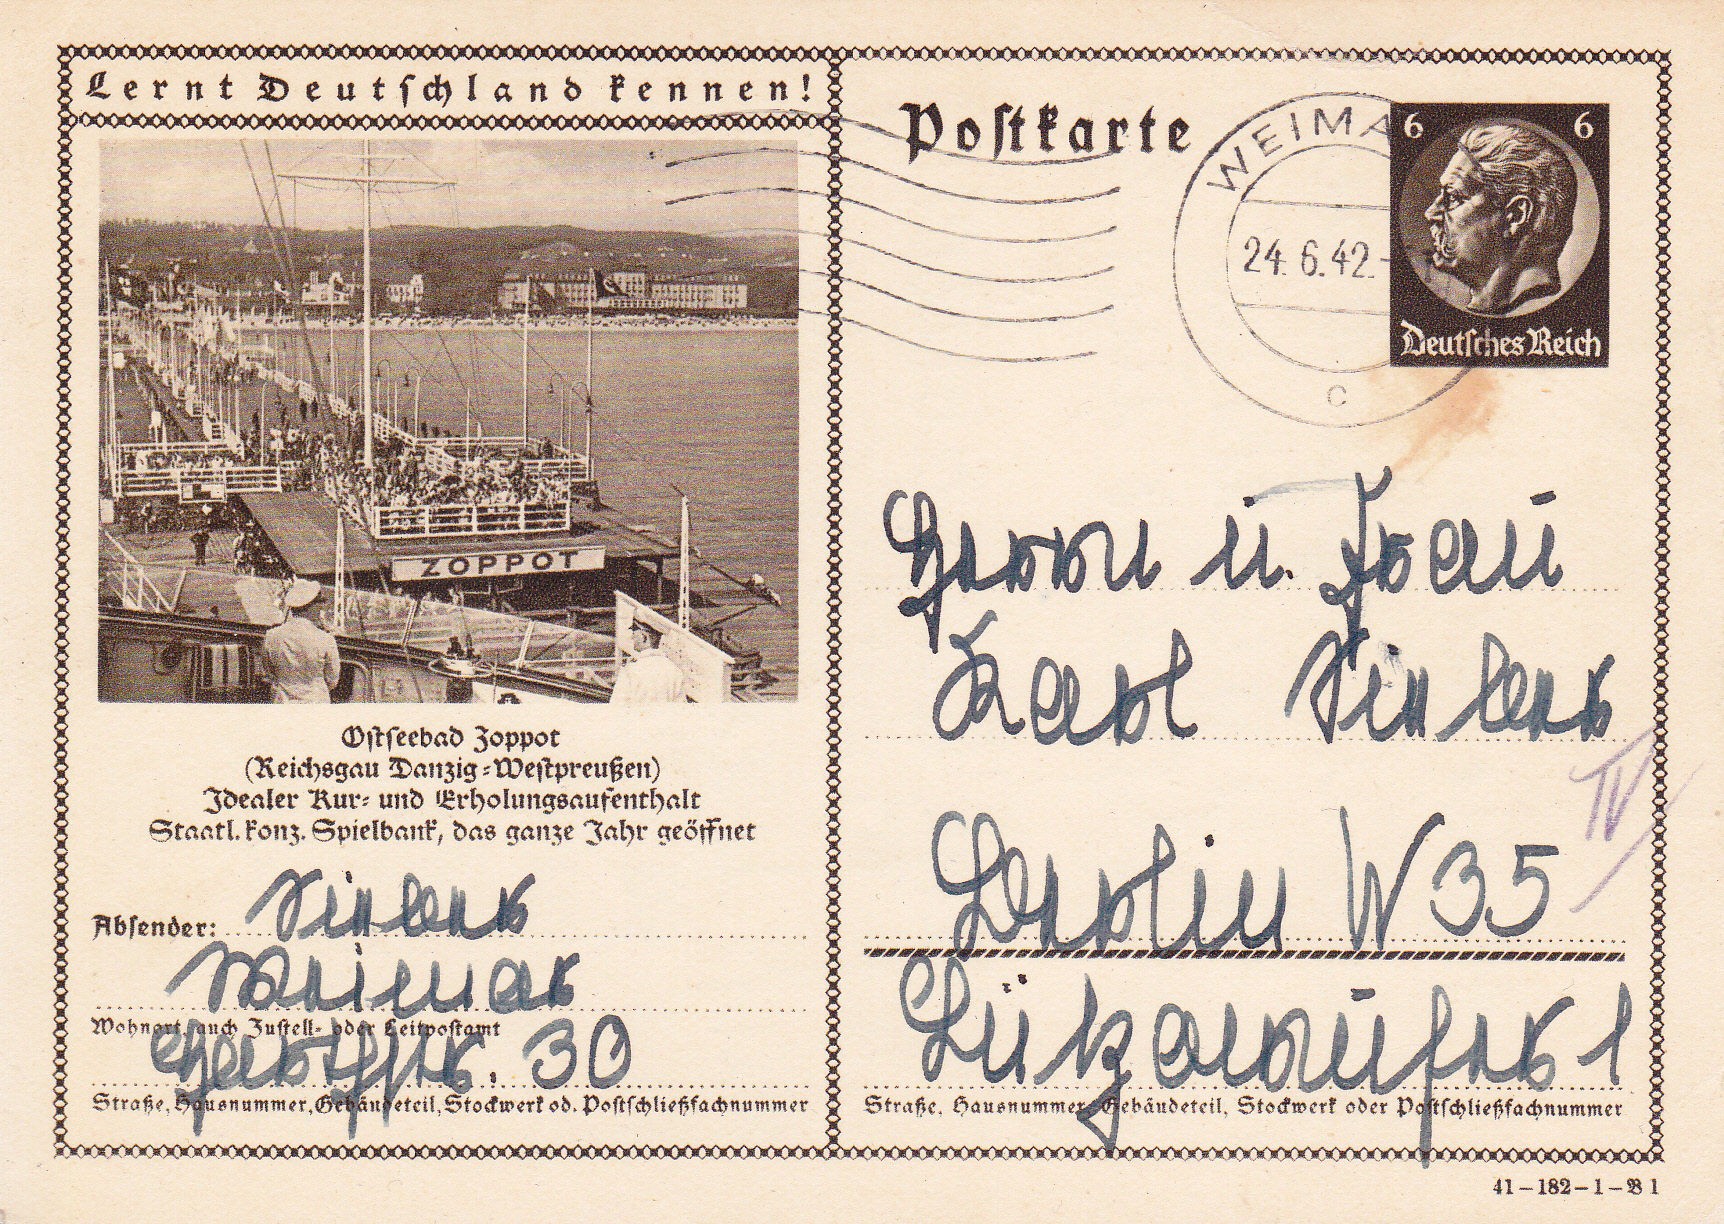 Lernt Deutschland kennen!
ZOPPOT
Ostseebad Zoppot
(Reichsgau Danzig-Westpreußen)
Idealer Kur- und Erholungsaufenthalt
Staatl. konz. Spielbank, das ganze Jahr geöffnet
Absender:
Weimar
Wohnort, auch Zustell- oder Leitpostamt
30
Straße, Hausnummer, Gebäudeteil, Stockwerk od. Postschließfachnummer
Postkarte
WEIMA
24.6.42.-
c
6 6
Deutsches Reich
Herrn u. Frau
Karl
IV
Berlin W 35
1
Straße, Hausnummer, Gebäudeteil, Stockwerk oder Postschließfachnummer
41-182-1-B 1